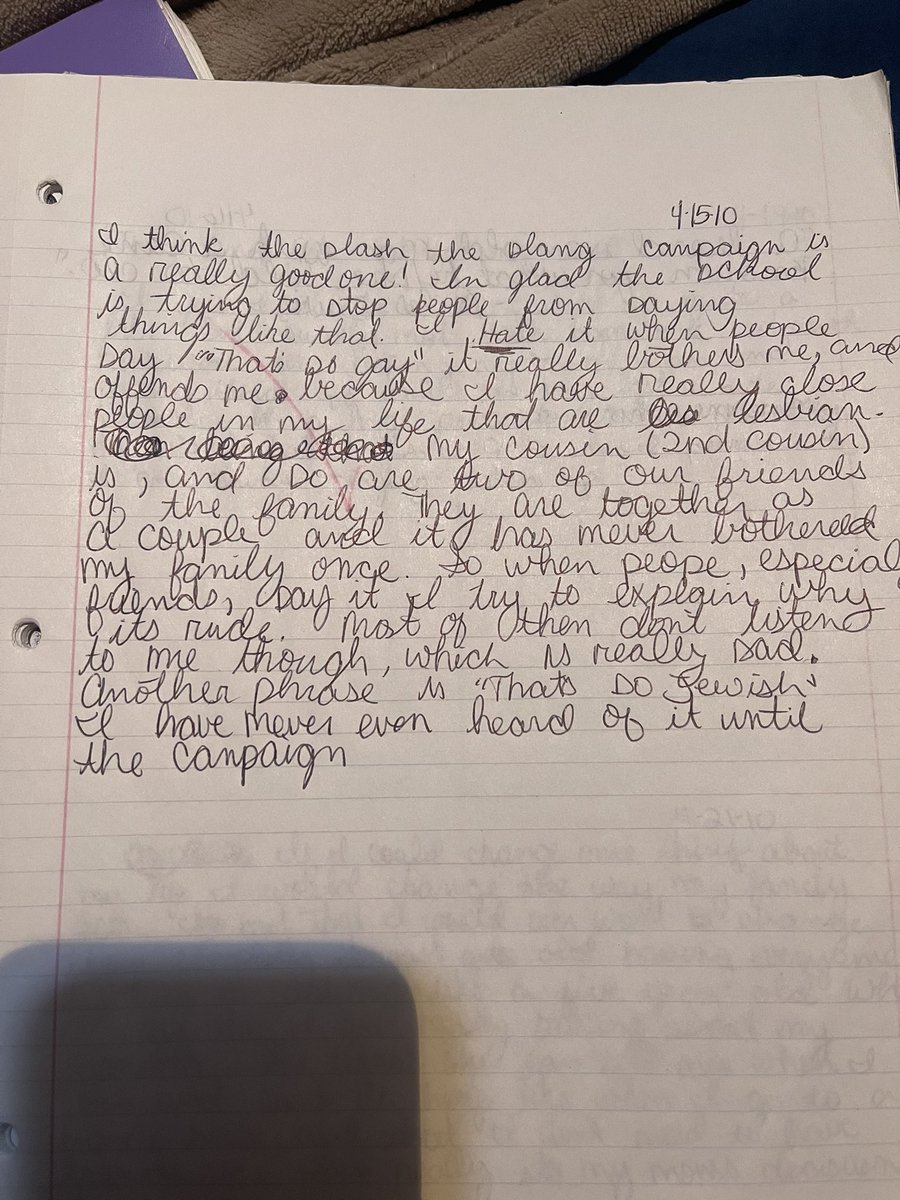 4-15-10
I think the slash the slang campaign is
a really good one! Im glad the school
is trying to stop people from saying
things like that. I Hate it when people
say "That's so gay" it really bothers me, and
offends me. because I have really close
people in my life that are les lesbian.
My cousin (2nd cousin)
is, and so are two of our friends
of the family. They are together as
a couple and it has never bothered
my family once. So when peope, especial
friends, say it I try to explain why
its rude. Most of them dont listen
to me though, which is really sad.
Another phrase is "Thats so Jewish"
I have never even heard of it until
the campaign